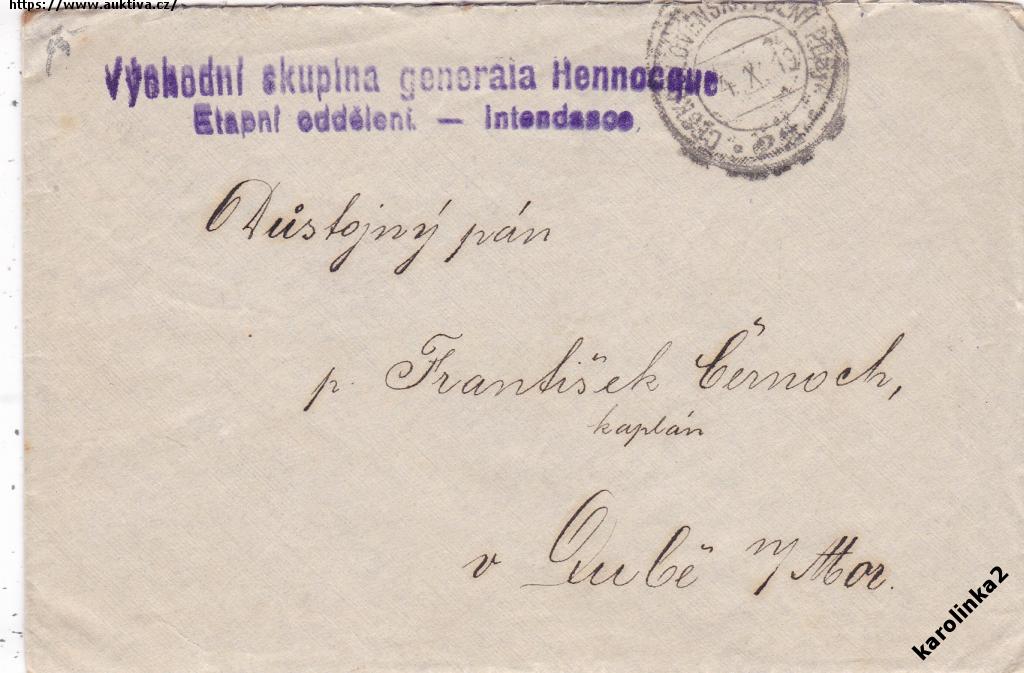 https://www.auktiva.cz/
Východní skupina generala Hennocque
Etapní oddělení. — Intendance
24
Důstojný pán
p. František Černoch,
kaplán
v Dubě n/Mor.
karolinka2